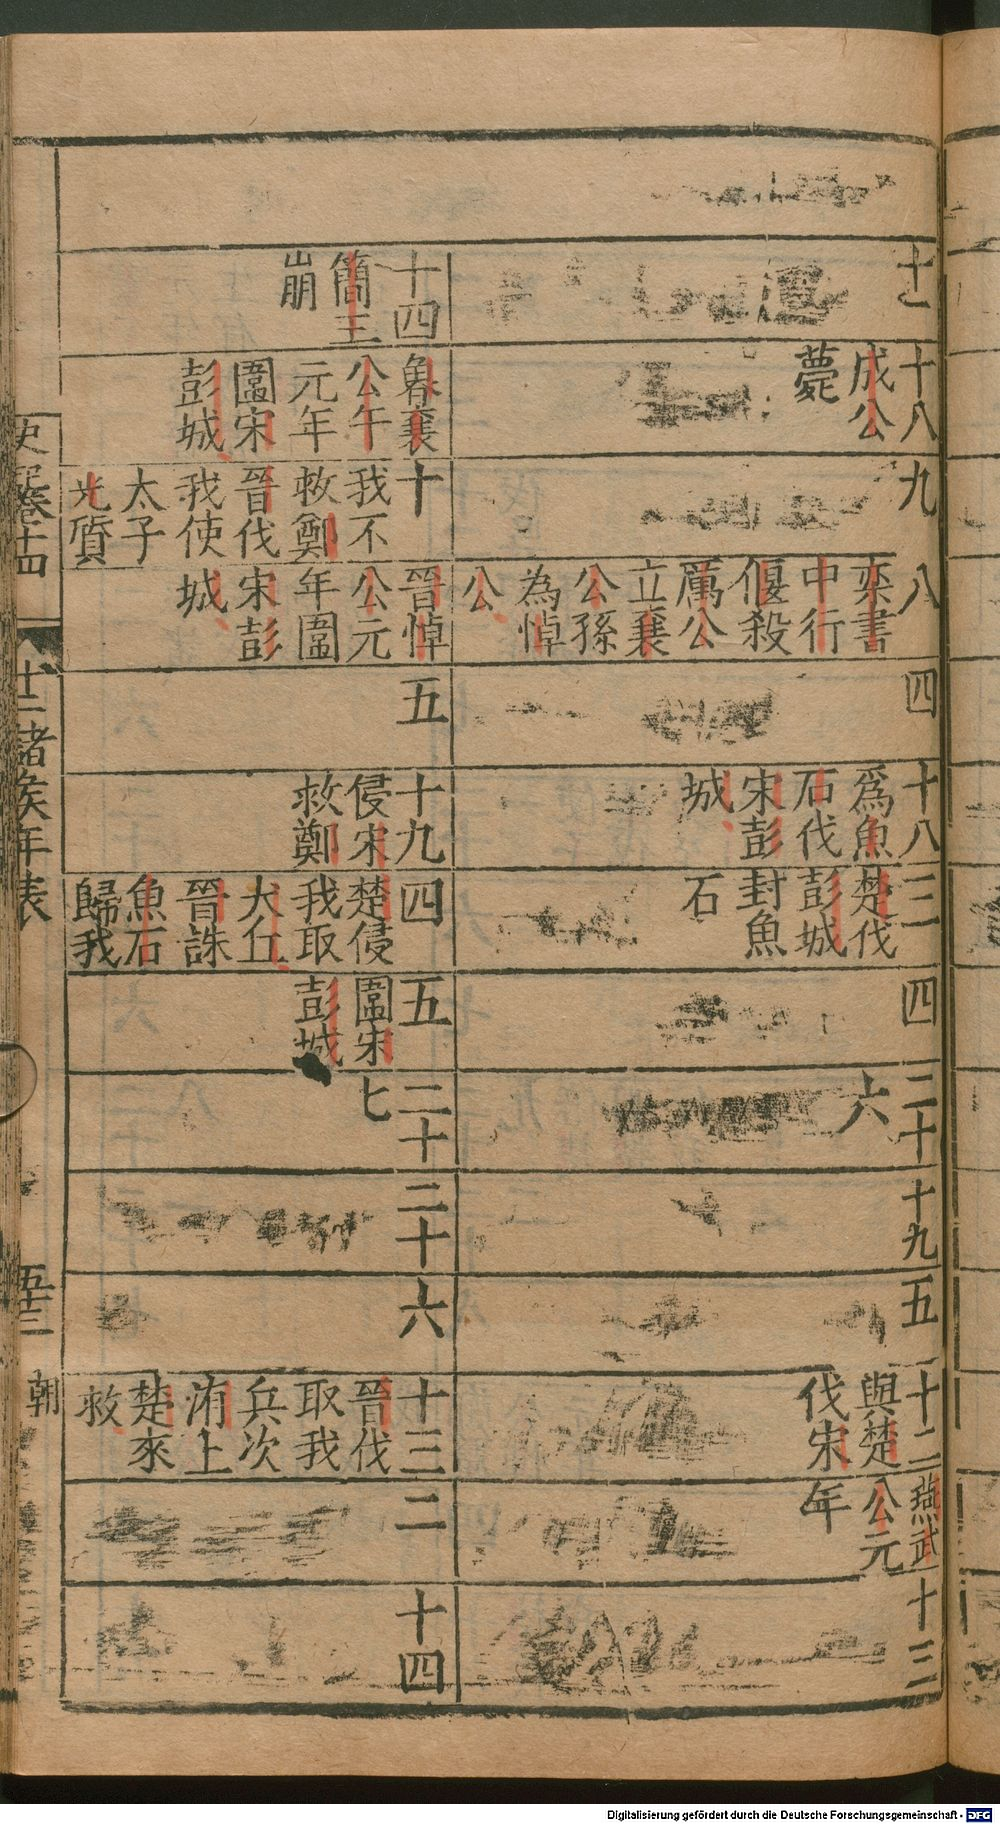 十八
成公
薨
九
八
栾書
中行
偃殺
厲公
立襄
公孫
為悼
公
四
十八
爲魚
石伐
宋彭
城
三
楚伐
彭城
封魚
石
四
二十
六
十九
五
十二
與楚
伐宋
燕武
公元
年
十三
十四
簡王
崩
魯襄
公午
元年
圍宋
彭城
十
我不
救鄭
晉伐
我使
太子
光質
晉悼
公元
年圍
宋彭
城
五
十九
侵宋
救鄭
四
楚侵
我取
犬丘
晉誅
魚石
歸我
五
圍宋
彭城
二十
七
二十
六
十三
晉伐
取我
兵次
洧上
楚來
救
二
十四
史記卷十四
十二諸侯年表
五十三
朝
Digitalisierung gefördert durch die Deutsche Forschungsgemeinschaft - DFG